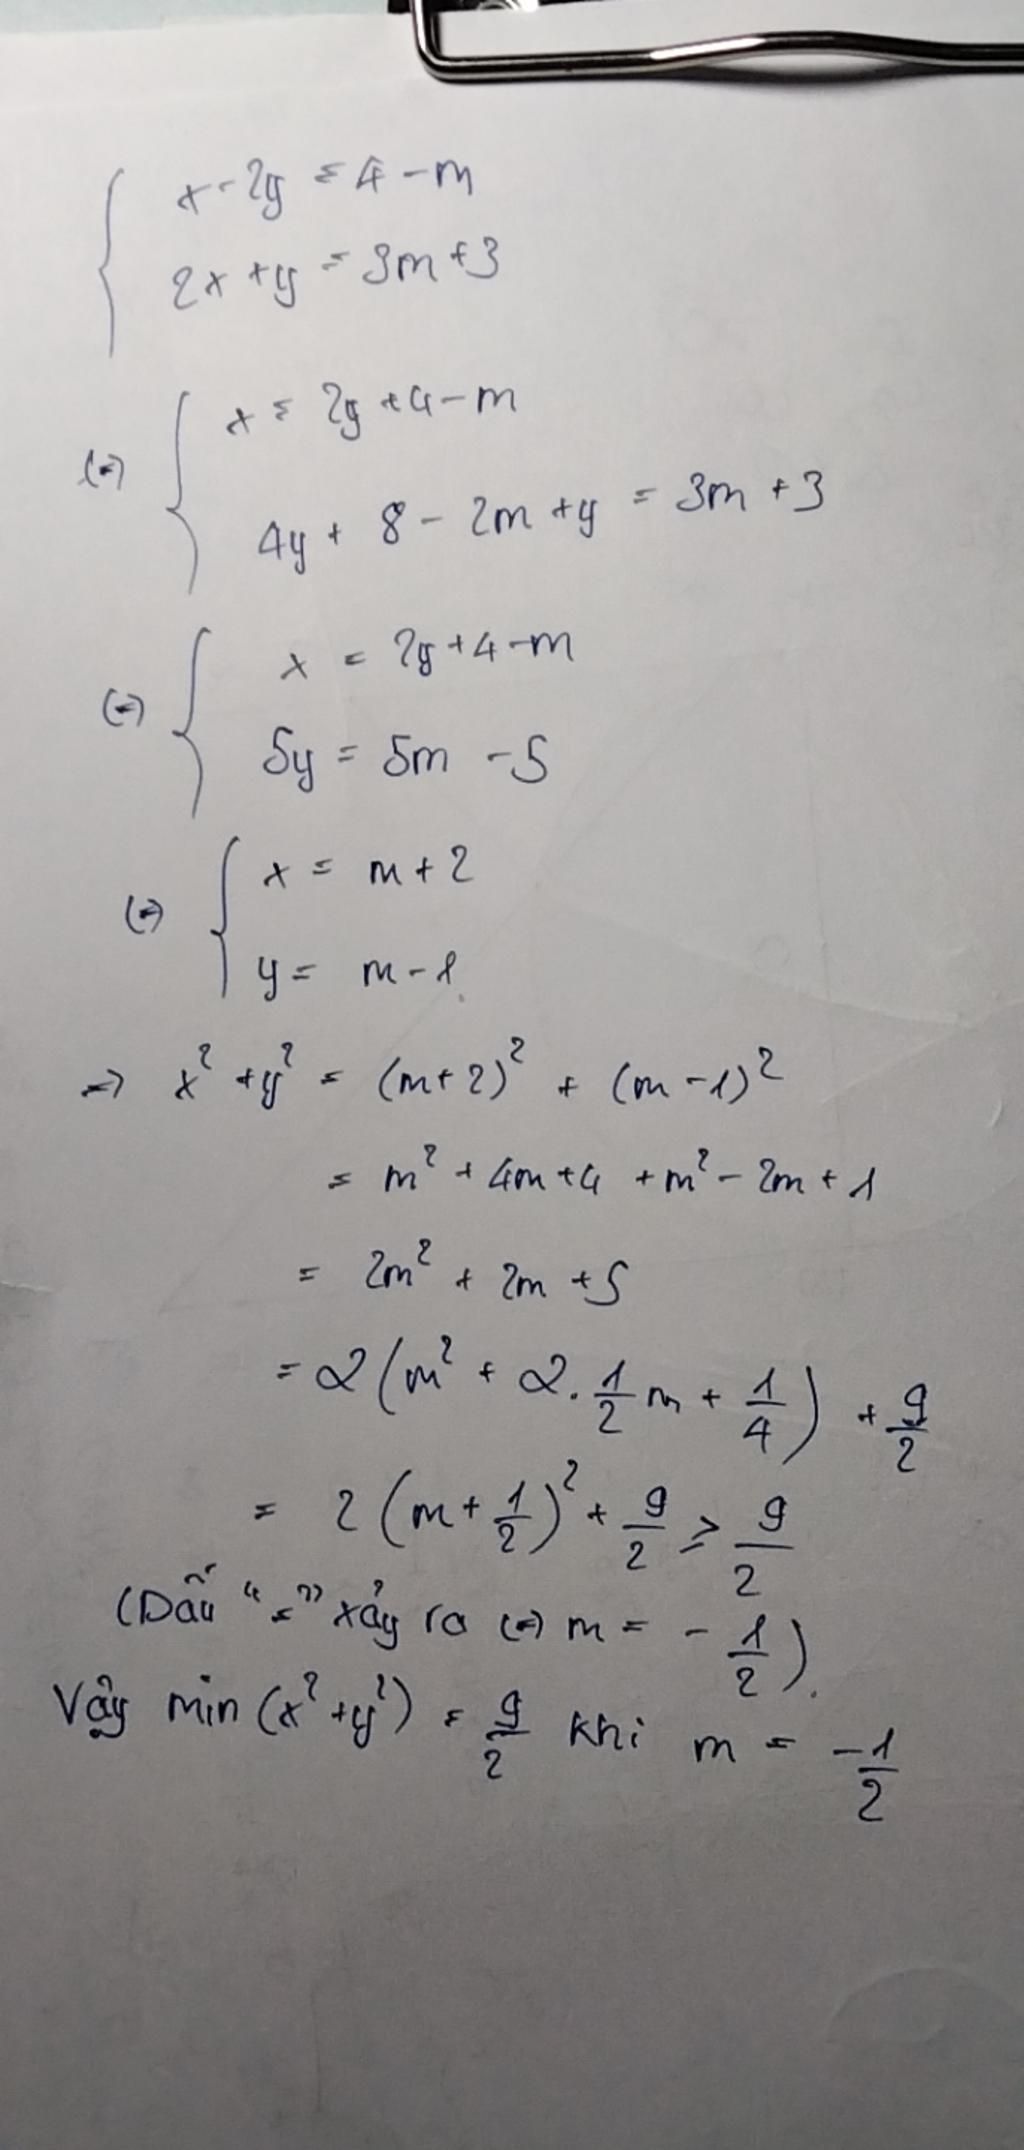 x - 2y = 4 - m
2x + y = 3m + 3
(=) x = 2y + 4 - m
4y + 8 - 2m + y = 3m + 3
(=) x = 2y + 4 - m
5y = 5m - 5
(=) x = m + 2
y = m - 1
=> x² + y² = (m+2)² + (m-1)²
= m² + 4m + 4 + m² - 2m + 1
= 2m² + 2m + 5
= 2(m² + 2.1/2 m + 1/4) + 9/2
= 2(m + 1/2)² + 9/2 ≥ 9/2
(Dấu "=" xảy ra (=) m = -1/2).
Vậy min (x² + y²) = 9/2 khi m = -1/2